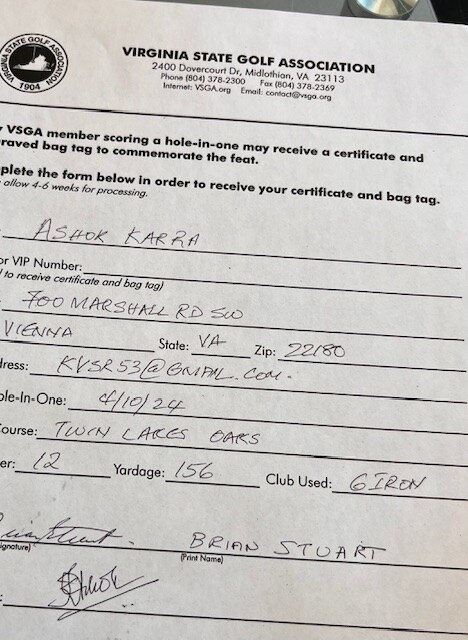 VIRGINIA STATE GOLF ASSOCIATION
1904
VIRGINIA STATE GOLF ASSOCIATION
2400 Dovercourt Dr, Midlothian, VA 23113
Phone (804) 378-2300 Fax (804) 378-2369
Internet: VSGA.org Email: contact@vsga.org
VSGA member scoring a hole-in-one may receive a certificate and
raved bag tag to commemorate the feat.
plete the form below in order to receive your certificate and bag tag.
allow 4-6 weeks for processing.
ASHOK KARRA
or VIP Number:
to receive certificate and bag tag)
700 MARSHALL RD SW
VIENNA State: VA Zip: 22180
dress: KVSR53@GMAIL.COM.
ole-In-One: 4/10/24
Course: TWIN LAKES OAKS
er: 12 Yardage: 156 Club Used: 6 IRON
BRIAN STUART
ignature) (Print Name)